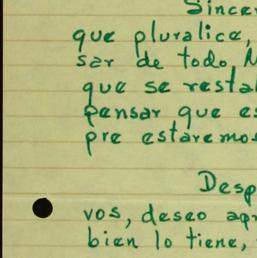 Sincer
que pluralice,
sar de todo,
que se resta
pensar que es
pre estaremos
Desp
vos, deseo apr
bien lo tiene,